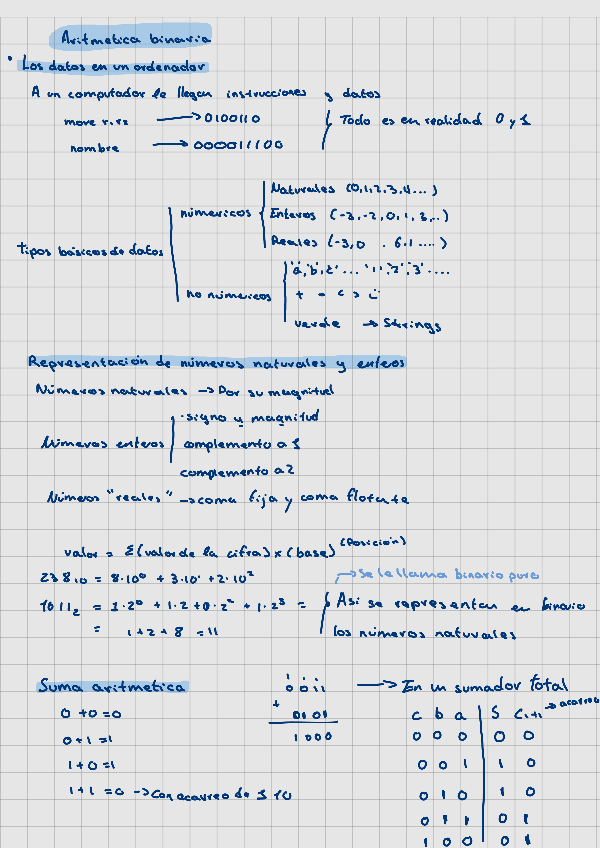 Aritmetica binaria
• Los datos en un ordenador
A un computador le llegan instrucciones y datos
move r1, r2 → 0100110
Todo es en realidad 0 y 1
nombre → 000011100
tipos básicos de datos
númericos
Naturales (0,1,2,3,4...)
Enteros (-3,-2,0,1,3,..)
Reales (-3,0 . 6.1 ....)
no númericos
'a','b','c' ... '1','2','3' ....
+ - < >
verde → Strings
Representación de números naturales y enteros
Números naturales → Por su magnitud
Números enteros
signo y magnitud
complemento a 1
complemento a 2
Números "reales" → coma fija y coma flotante
valor = Σ(valor de la cifra) x (base)^(Posicion)
238₁₀ = 8·10⁰ + 3·10¹ + 2·10²
→ Se le llama binario puro
1011₂ = 1·2⁰ + 1·2 + 0·2² + 1·2³ =
= 1+2+8 = 11
Asi se representan en binario
los números naturales
Suma aritmetica
0+0=0
0+1=1
1+0=1
1+1=0 → Con acarreo de 1 10
0011
+
0101
1000
→ En un sumador total
c b a S Cᵢ₊₁ → acarreo
0 0 0 0 0
0 0 1 1 0
0 1 0 1 0
0 1 1 0 1
1 0 0 0 1